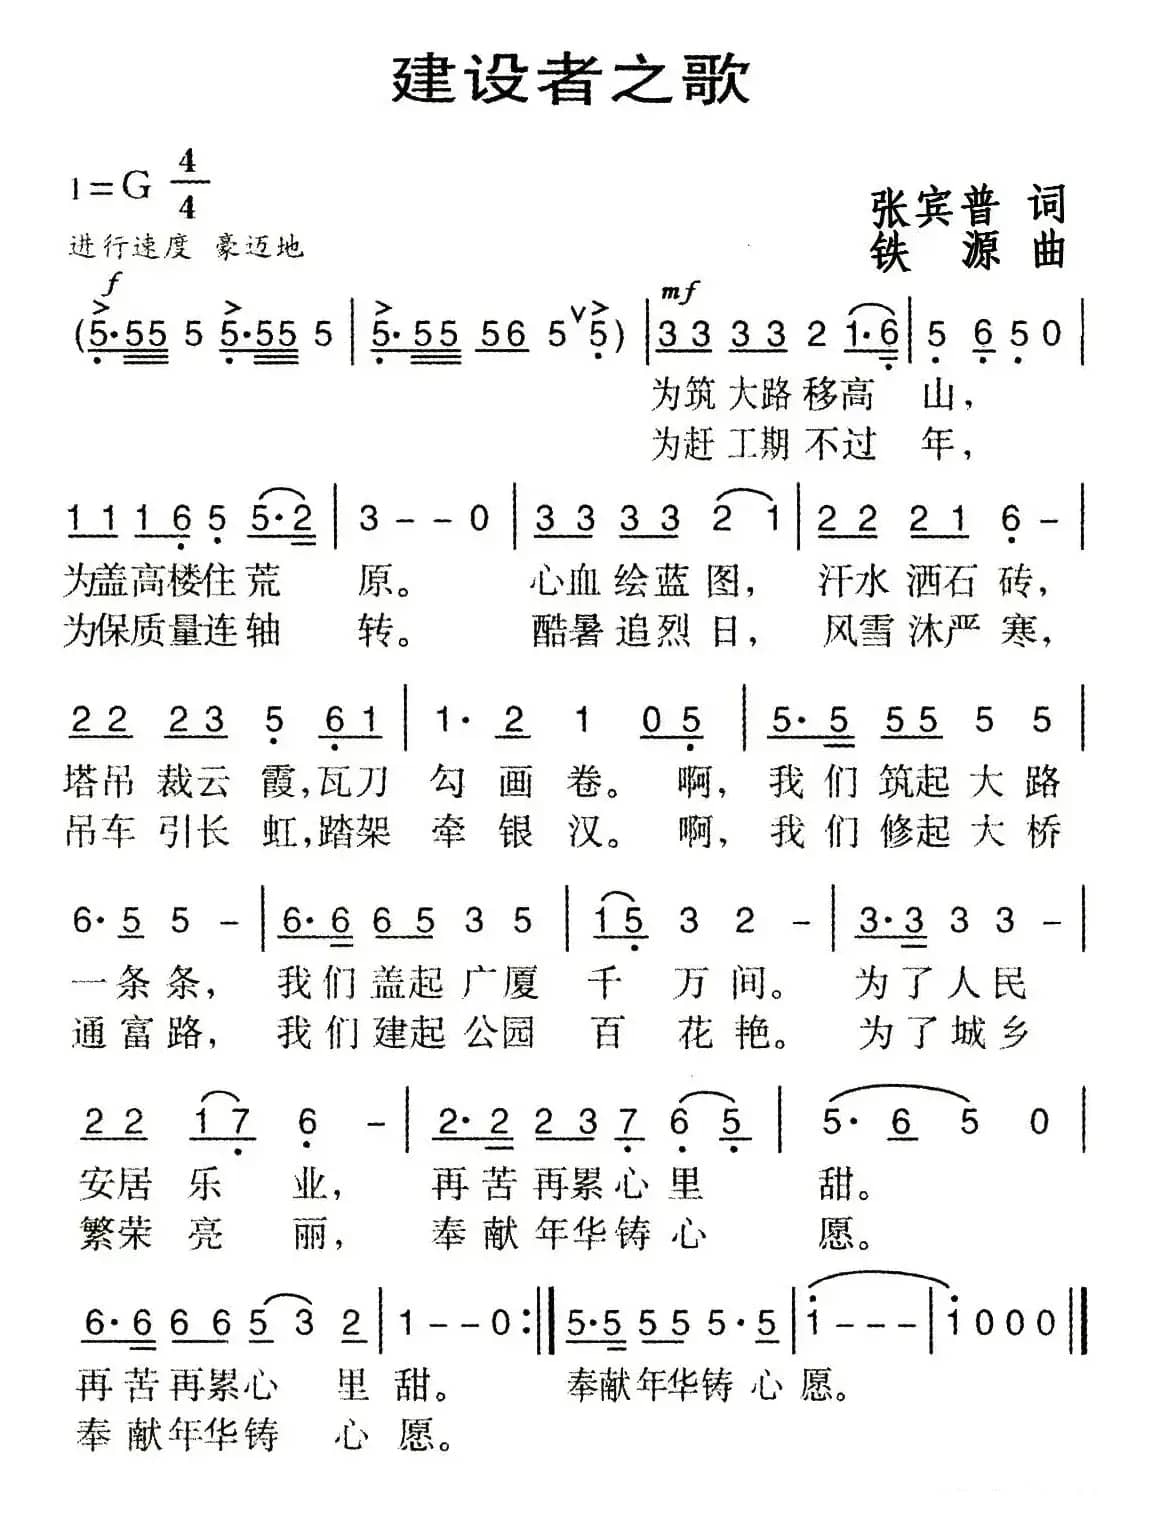 建设者之歌
1=G 4/4
张宾普 词
进行速度 豪迈地
铁源 曲
f mf
(5·55 5 5·55 5 | 5·55 56 5 5) | 33 33 2 1·6 | 5 6 5 0 |
为筑 大路 移高 山，
为赶 工期 不过 年，
11 16 5 5·2 | 3 - - 0 | 33 33 2 1 | 22 21 6 - |
为盖高楼住荒 原。 心血绘蓝图， 汗水洒石砖，
为保质量连轴 转。 酷暑追烈日， 风雪沐严寒，
22 23 5 61 | 1· 2 1 05 | 5·5 55 5 5 |
塔吊 裁云 霞，瓦刀 勾画卷。 啊， 我们筑起大路
吊车 引长 虹，踏架 牵银汉。 啊， 我们修起大桥
6·5 5 - | 6·6 65 3 5 | 15 3 2 - | 3·3 3 3 - |
一条条， 我们盖起广厦 千万间。 为了人民
通富路， 我们建起公园 百花艳。 为了城乡
22 17 6 - | 2·2 23 7 6 5 | 5·6 5 0
安居 乐业， 再苦再累心里 甜。
繁荣 亮丽， 奉献年华铸心 愿。
6·6 66 5 3 2 | 1 - - 0 :‖ 5·5 55 5·5 | 1 - - - | 1 0 0 0 ‖
再苦再累心 里甜。 奉献年华铸心愿。
奉献年华铸 心愿。